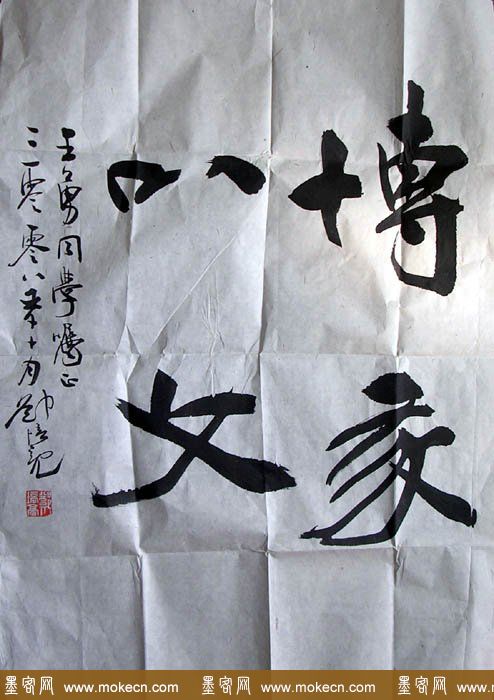 博我
以文
王勇同學囑正
二零零八年十月
墨客网 www.mokecn.com 墨客网 www.mokecn.com 墨客网 www.